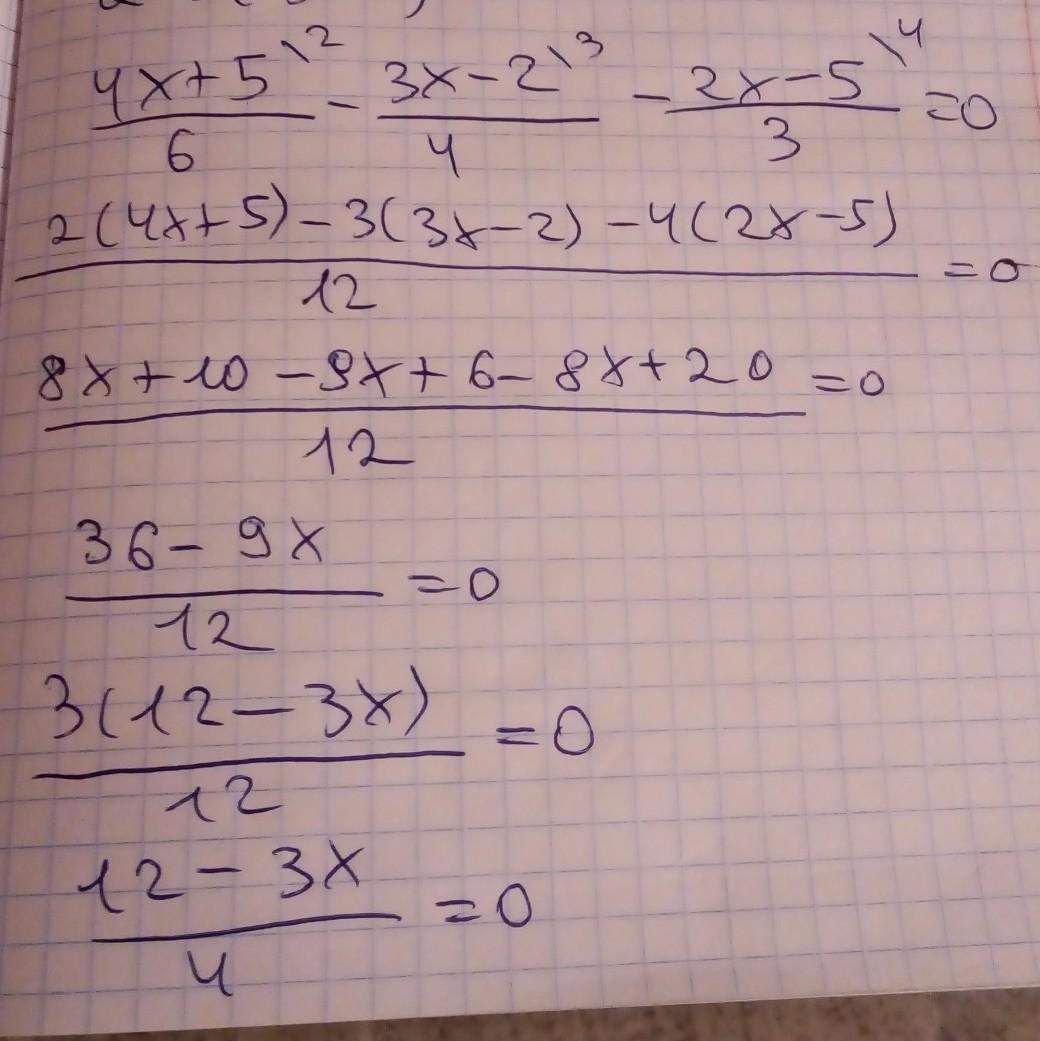 4x+5\2 / 6 - 3x-2\3 / 4 - 2x-5\4 / 3 =0
2(4x+5)-3(3x-2)-4(2x-5) / 12 =0
8x+10-9x+6-8x+20 / 12 =0
36-9x / 12 =0
3(12-3x) / 12 =0
12-3x / 4 =0